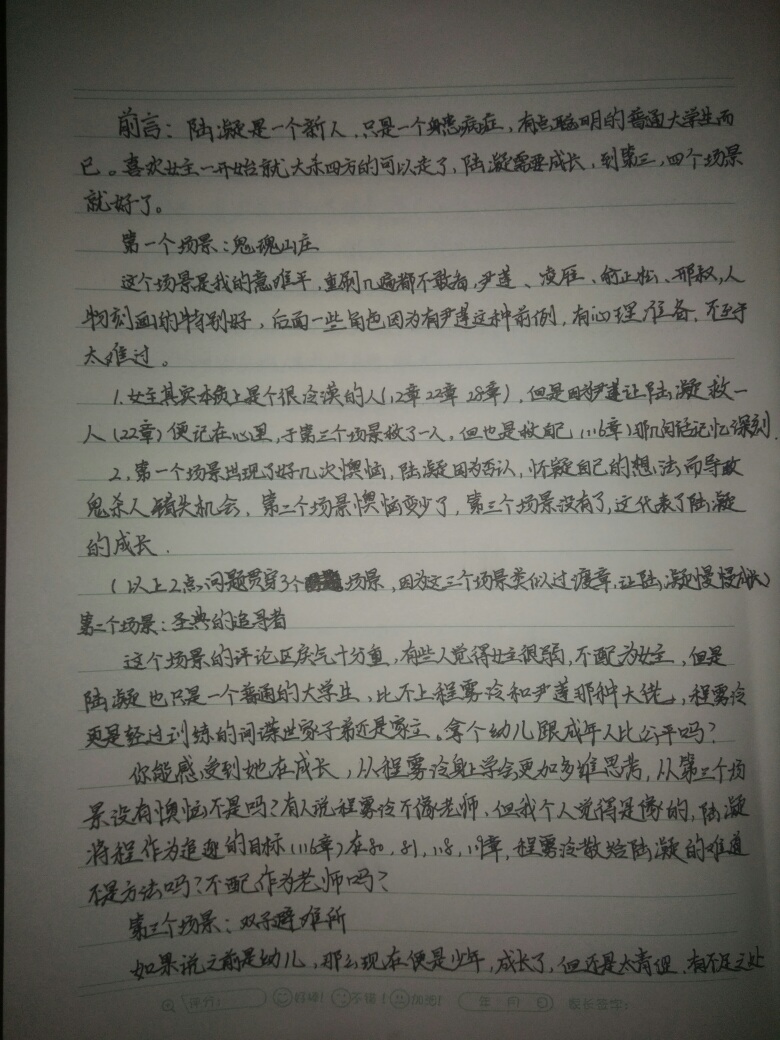 前言：陆凝是一个新人，只是一个身患病症，有点聪明的普通大学生而
已。喜欢女主一开始就大杀四方的可以走了，陆凝需要成长，到第三，四个场景
就好了。
第一个场景：鬼魂山庄
这个场景是我的意难平，重刷几遍都不敢看，尹莲、凌雁、俞正松、邢叔，人
物刻画的特别好，后面一些角色因为有尹莲这种前例，有心理准备，不至于
太难过。
1.女主其实本质上是个很冷漠的人（12章22章28章），但是因为尹莲让陆凝救一
人（22章）便记在心里，于第三个场景救了一人，但也是救自己（116章）那几句话记忆深刻.
2.第一个场景出现了好几次懊恼，陆凝因为否认，怀疑自己的想法而导致
鬼杀人错失机会，第二个场景懊恼变少了，第三个场景没有了，这代表了陆凝
的成长.
（以上2点问题贯穿3个场景，因为这三个场景类似过渡章，让陆凝慢慢成长）
第二个场景：圣典的追寻者
这个场景的评论区戾气十分重，有些人觉得女主很弱，不配为女主，但是
陆凝也只是一个普通的大学生，比不上程雾泠和尹莲那种大佬，程雾泠
更是经过训练的间谍世家子弟还是家主。拿个幼儿跟成年人比公平吗？
你能感受到她在成长，从程雾泠身上学会更加多维思考，从第三个场
景没有懊恼不是吗？有人说程雾泠不像老师，但我个人觉得是像的，陆凝
将程作为追逐的目标（116章）在80，81，118，119章，程雾泠教给陆凝的难道
不是方法吗？不配作为老师吗？
第三个场景：双子避难所
如果说之前是幼儿，那么现在便是少年，成长了，但还是太青涩，有不足之处
评分：
好棒！
不错！
加油！
年 月 日
家长签字：